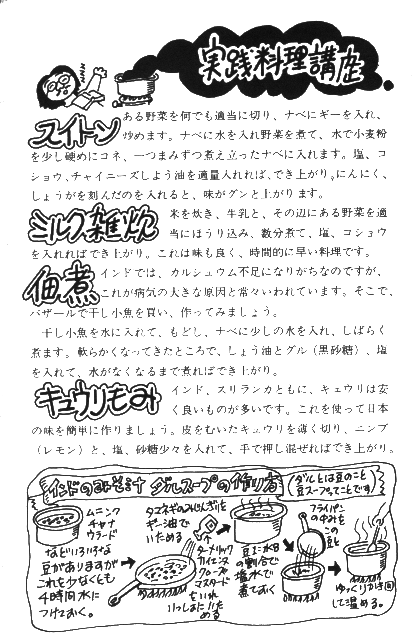 実践料理講座
スイトン
ある野菜を何でも適当に切り、ナベにギーを入れ、
炒めます。ナベに水を入れ野菜を煮て、水で小麦粉
を少し硬めにコネ、一つまみずつ煮え立ったナベに入れます。塩、コ
ショウ、チャイニーズしょう油を適量入れれば、でき上がり。にんにく、
しょうがを刻んだのを入れると、味がグンと上がります。
ミルク雑炊
米を炊き、牛乳と、その辺にある野菜を適
当にほうり込み、数分煮て、塩、コショウ
を入れればでき上がり。これは味も良く、時間的に早い料理です。
佃煮
インドでは、カルシュウム不足になりがちなのですが、
これが病気の大きな原因と常々いわれています。そこで、
バザールで干し小魚を買い、作ってみましょう。
干し小魚を水に入れて、もどし、ナベに少しの水を入れ、しばらく
煮ます。軟らかくなってきたところで、しょう油とグル（黒砂糖）、塩
を入れて、水がなくなるまで煮ればでき上がり。
キュウリもみ
インド、スリランカともに、キュウリは安
く良いものが多いです。これを使って日本
の味を簡単に作りましょう。皮をむいたキュウリを薄く切り、ニンブ
（レモン）と、塩、砂糖少々を入れて、手で押し混ぜればでき上がり。
インドのみそ汁 ダルスープの作り方
（ダルとは豆のこと
豆スープってことです）
ムニング
チャナ
ウラード
などいろいろな
豆がありますが
これを少なくとも
4時間水に
つけておく。
タマネギのみじんぎりを
ギー油で
いためる
ターメリック
カイエンヌ
クローブ
マスタード
をいれ
いっしょにいためる
豆1:水8
の割合で
塩水で
煮ておく
フライパン
の中みを
この
豆と
ゆっくりかき回
して温める。